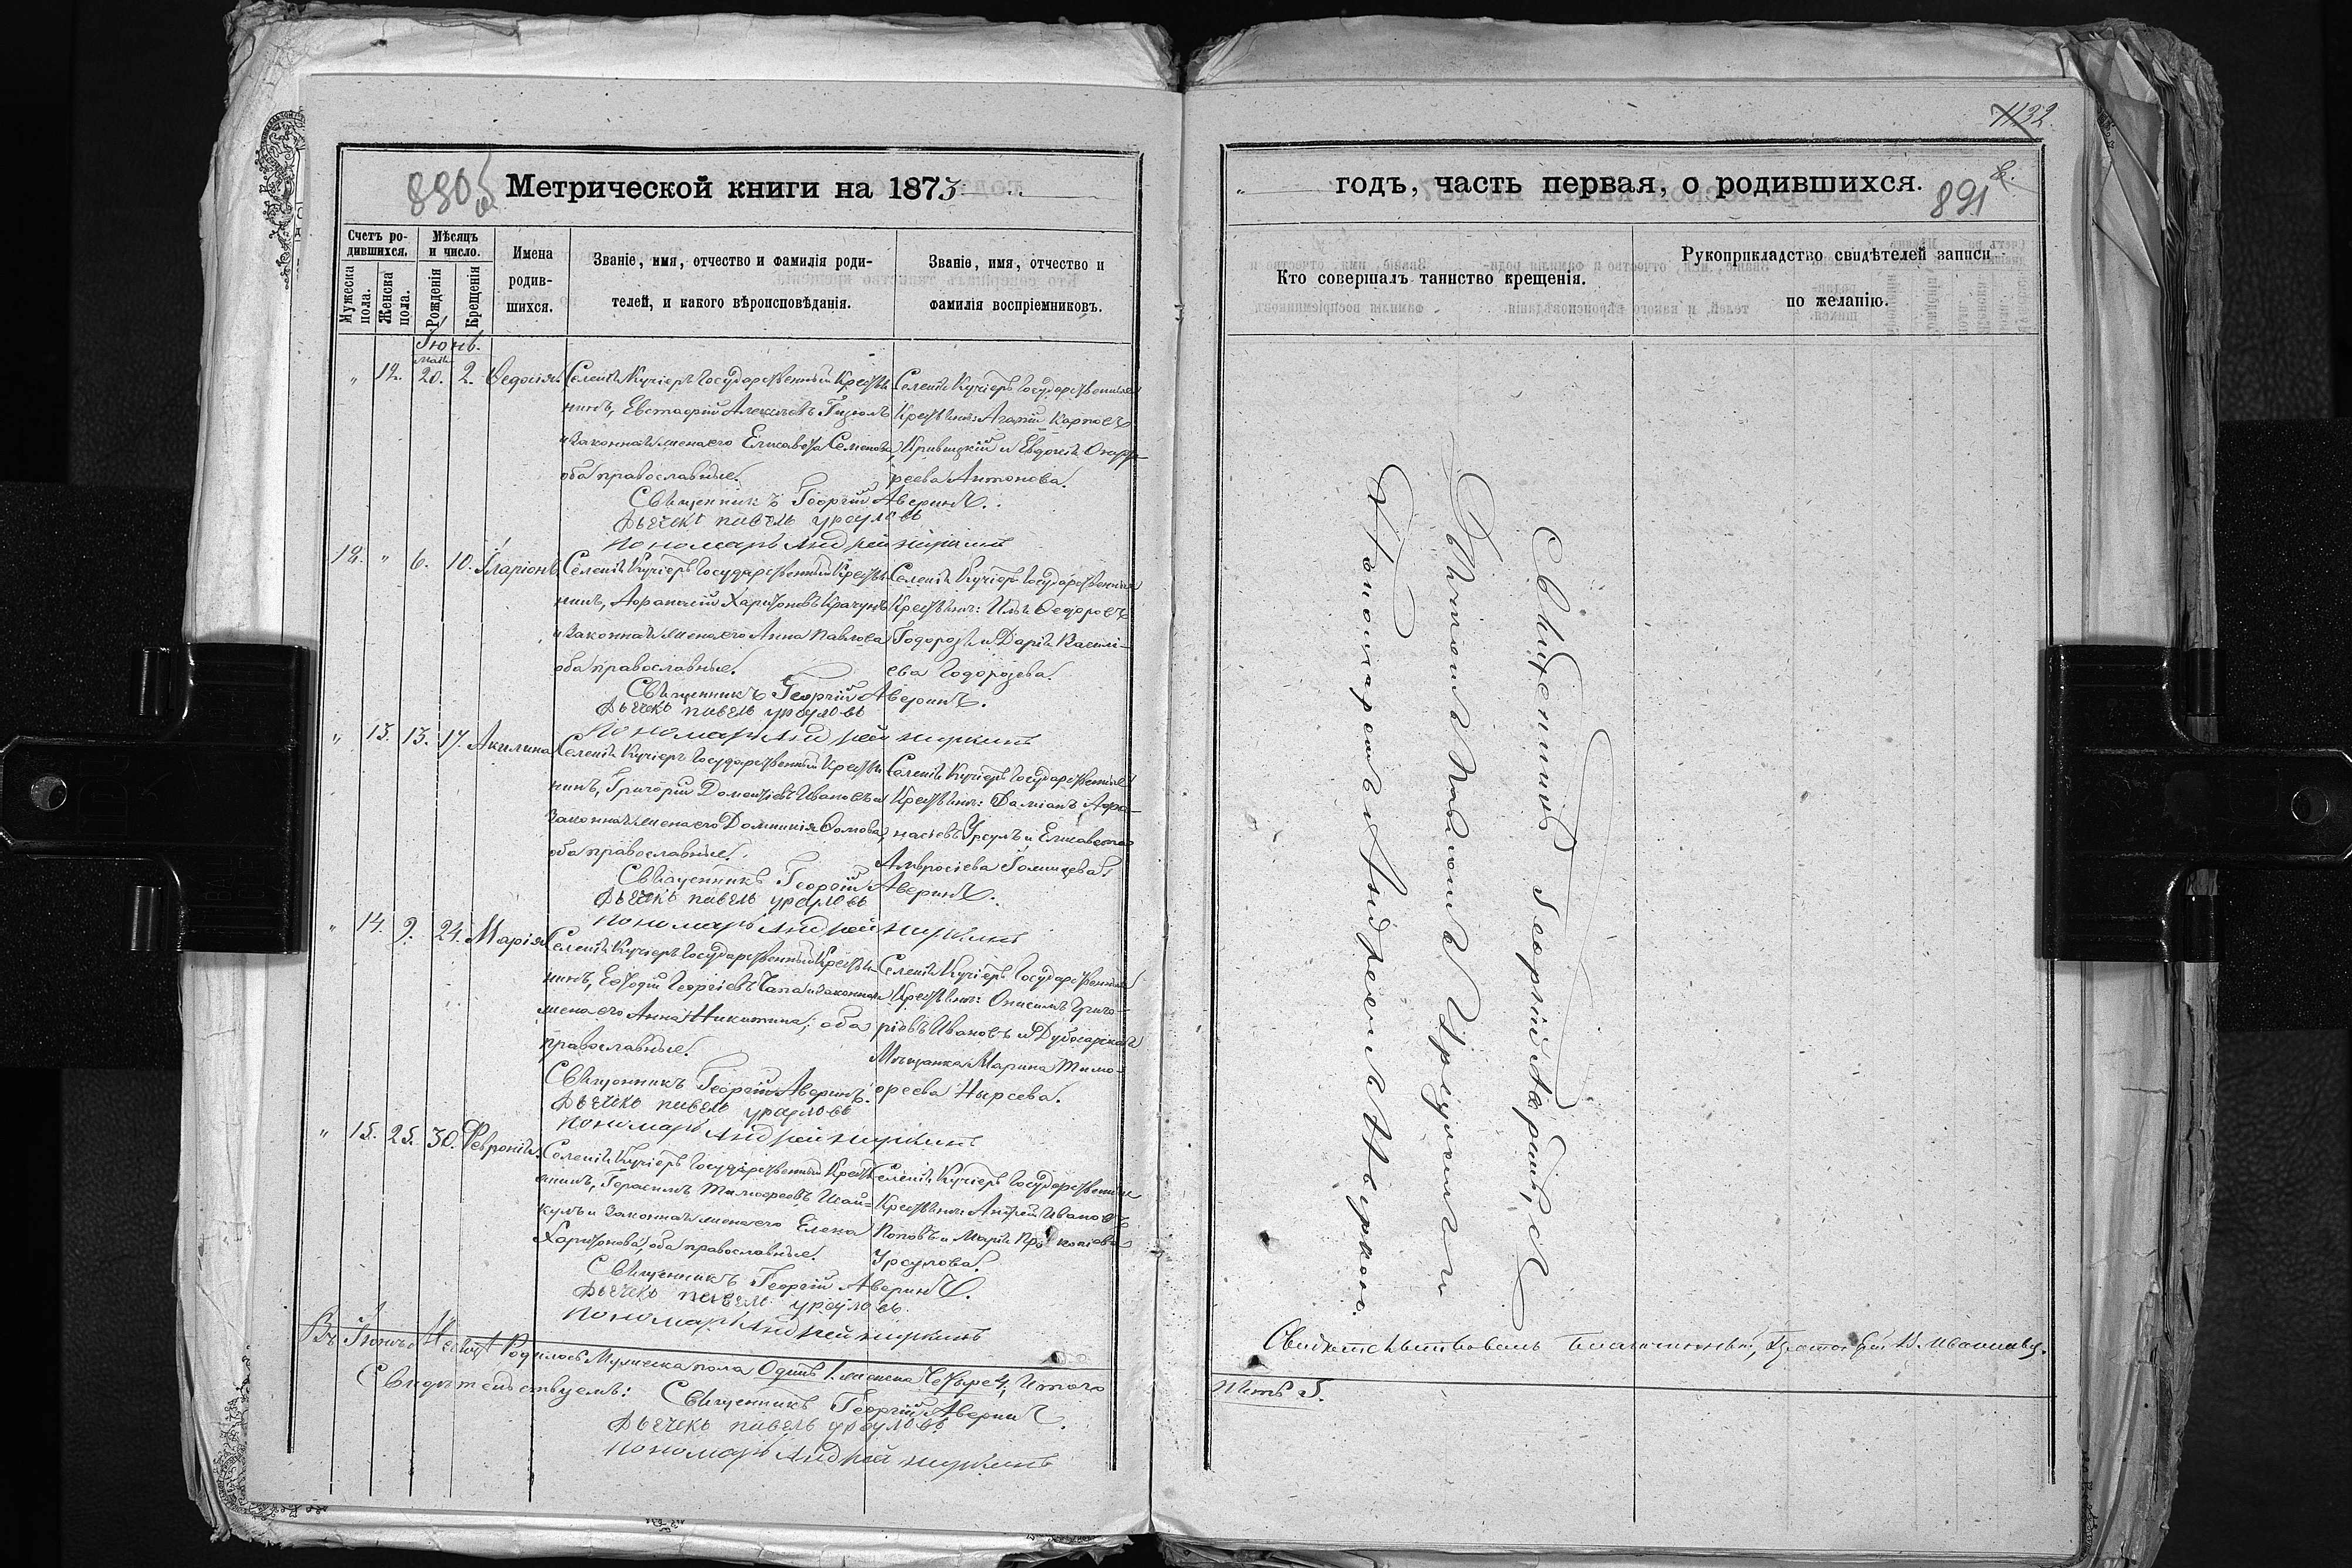 880
Метрической книги на 1873
Счетъ родившихся.
Мѣсяцъ и число.
Имена родившихся.
Званіе, имя, отчество и фамилія родителей, и какого вѣроисповѣданія.
Званіе, имя, отчество и фамилія воспріемниковъ.
Мужеска пола.
Женска пола.
Рожденія
Крещенія
Іюнь.
" 12. Маія 20. 2. Ѳедосія.
Селенія Кучіеръ Государственный Крестья-
нинъ, Евстафій Алексѣевъ
и законная жена его Елисавета Семенова,
оба православные.
Селенія Кучіеръ Государственные
Крестьяне: Агапій Карповъ
Кривицкій и Евдокія Онуф-
реева Антонова.
Священникъ Георгій Аверинъ.
Дьячекъ павелъ урсуловъ
Пономарь Андрей
12. " 6. 10. Иларіонъ.
Селенія Кучіеръ Государственный Крестья-
нинъ, Афанасій Харитоновъ Крачунъ
и законная жена его Анна Павлова
оба православные.
Селенія Кучіеръ Государственные
Крестьяне: Илья Ѳедоровъ
Тодорозъ и Дарія Васили-
ева Тодорозева.
Священникъ Георгій Аверинъ.
Дьячекъ павелъ урсуловъ
Пономарь Андрей
" 13. 13. 17. Акилина
Селенія Кучіеръ Государственный Крестья-
нинъ, Григорій Дометіевъ Ивановъ и
законная жена его Домникія Ѳомова,
оба православные.
Селенія Кучіеръ Государственные
Крестьяне: Даміанъ Афа-
насіевъ Урсулъ и Елисавета
Амвросіева
Священникъ Георгій Аверинъ.
Дьячекъ павелъ урсуловъ
Пономарь Андрей
" 14. 9. 24. Марія
Селенія Кучіеръ Государственный Крестья-
нинъ, Георгіевъ Чапа и законная
жена его Анна Никитина; оба
православные.
Селенія Кучіеръ Государственный
Крестьянинъ: Онисимъ Григо-
ріевъ Ивановъ и Дубосарская
Мѣщанка Марина Тимо-
феева Нырсева.
Священникъ Георгій Аверинъ.
Дьячекъ павелъ урсуловъ
Пономарь Андрей
" 15. 25. 30. Февронія.
Селенія Кучіеръ Государственный Кресть-
янинъ, Герасимъ Тимофеевъ
и законная жена его Елена
Харитонова, оба православные.
Селенія Кучіеръ Государственные
Крестьяне Андрей Ивановъ
Поповъ и Марія Прокопіева
Урсулова.
Священникъ Георгій Аверинъ.
Дьячекъ павелъ урсуловъ.
Пономарь Андрей
Въ Іюнѣ Мѣсяцѣ Родилось Мужеска пола Одинъ 1. женска Четыре 4; Итого
Свидѣтельствуемъ: Священникъ Георгій Аверинъ.
Дьячекъ павелъ урсуловъ.
Пономарь Андрей
1132
годъ, часть первая, о родившихся.
891
Кто совершалъ таинство крещенія.
Рукоприкладство свидѣтелей записи по желанію.
Священникъ Георгій Аверинъ, съ
Дьячкомъ Павломъ Урсуломъ и
Пономаремъ Андреемъ
Свидѣтельствовалъ Благочинный, Протоіерей
Пять 5.